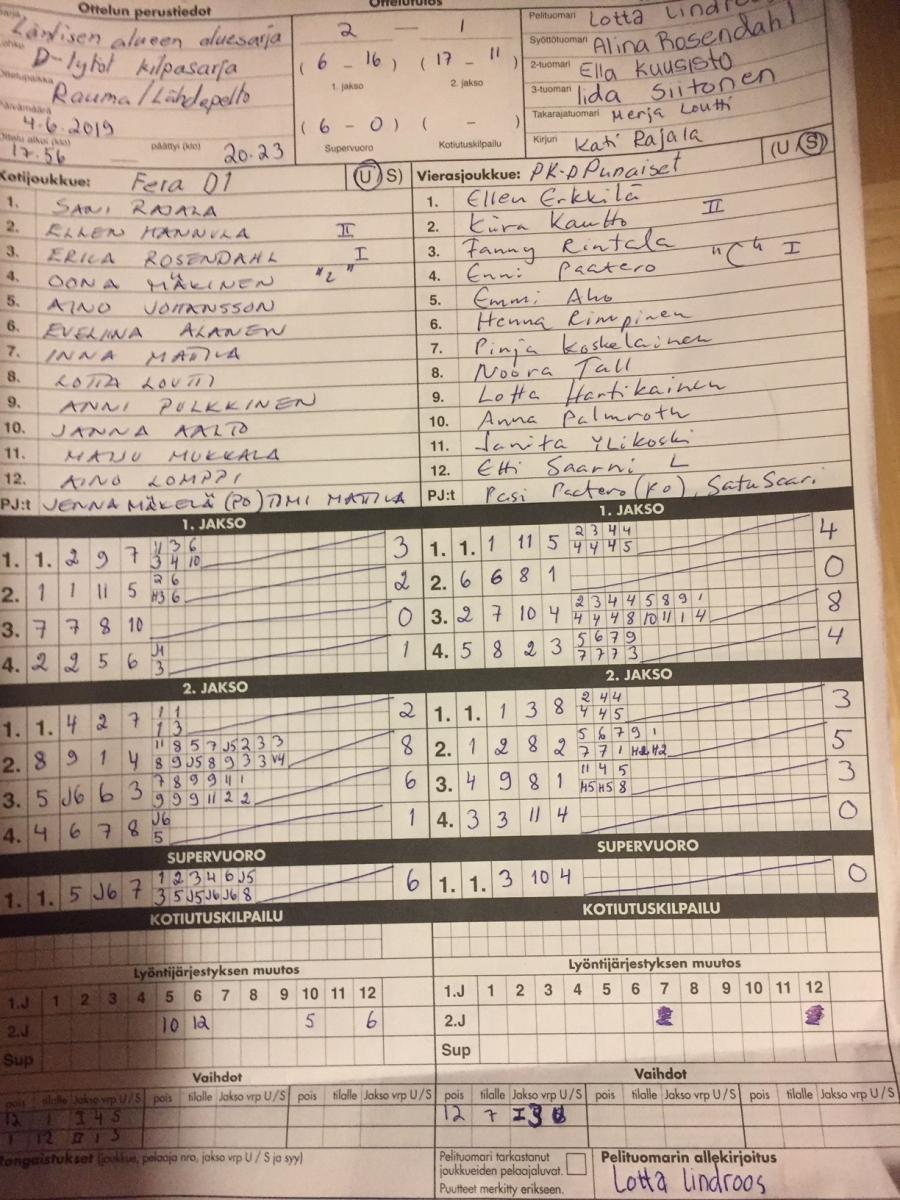 Ottelun perustiedot
Ottelutulos
Läntisen alueen aluesarja
D-tytöt kilpasarja
Rauma/Lähdepelto
4.6.2019
17.56 päättyi (klo) 20.23
2 — 1
(6 - 16) (17 - 11)
1. jakso 2. jakso
(6 - 0) ( - )
Supervuoro Kotiutuskilpailu
Pelituomari Lotta Lindroos
Syöttötuomari Alina Rosendahl
2-tuomari Ella Kuusisto
3-tuomari Iida Siitonen
Takarajatuomari Merja Loutti
Kirjuri Kati Rajala
Kotijoukkue: Fera 01 (U S)
1. SANI RAJALA
2. ELLEN MANNULA II
3. ERICA ROSENDAHL I
4. OONA MÄKINEN "2"
5. AINO JOHANSSON
6. EVELIINA ALANEN
7. INNA MATTILA
8. LOTTA LOUTTI
9. ANNI PULKKINEN
10. JANNA AALTO
11. MAIJU MUKKALA
12. AINO LOMPPI
PJ:t JENNA MÄKELÄ (PO) TIMI MATTILA
Vierasjoukkue: PK-D Punaiset (U S)
1. Ellen Erkkilä
2. Kiira Kautto II
3. Fanny Rintala
4. Enni Paatero "C" I
5. Emmi Aho
6. Henna Rimpinen
7. Pinja Koskelainen
8. Noora Tall
9. Lotta Hartikainen
10. Anna Palmroth
11. Janita Ylikoski
12. Etti Saarni L
PJ:t Pasi Paatero (PO), Satu Saari
1. JAKSO
1. 1. 2 9 7 11 3 6 3
3 4 10
2. 1 1 11 5 2 6 2
H3 6
3. 7 7 8 10 0
4. 2 2 5 6 1
3
1. JAKSO
1. 1. 1 11 5 2 3 4 4 4
4 4 4 5
2. 6 6 8 1 0
3. 2 7 10 4 2 3 4 4 5 8 9 1 8
4 4 4 8 10 11 1 4
4. 5 8 2 3 5 6 7 9 4
7 7 7 3
2. JAKSO
1. 1. 4 2 7 1 1 2
1 3
2. 8 9 1 4 11 8 5 7 J5 2 3 3 8
8 9 J5 8 9 3 3 V4
3. 5 J6 6 3 7 8 9 9 11 1 6
9 9 9 11 2 2
4. 4 6 7 8 J6 1
5
2. JAKSO
1. 1. 1 3 8 2 4 4 3
4 4 5
2. 1 2 8 2 5 6 7 9 1 5
7 7 1 H2 H2
3. 4 9 8 1 11 4 5 3
H5 H5 8
4. 3 3 11 4 0
SUPERVUORO
1. 1. 5 J6 7 1 2 3 4 6 J5 6
3 5 J5 J6 J6 8
SUPERVUORO
1. 1. 3 10 4 0
KOTIUTUSKILPAILU
KOTIUTUSKILPAILU
Lyöntijärjestyksen muutos
1.J 1 2 3 4 5 6 7 8 9 10 11 12
2.J 10 12 5 6
Sup
Lyöntijärjestyksen muutos
1.J 1 2 3 4 5 6 7 8 9 10 11 12
2.J
Sup
Vaihdot
pois tilalle Jakso vrp U/S pois tilalle Jakso vrp U/S pois tilalle Jakso vrp U/S
12 1 I 4 S
1 12 II 1 S
Vaihdot
pois tilalle Jakso vrp U/S pois tilalle Jakso vrp U/S pois tilalle Jakso vrp U/S
12 7 I 3
Rangaistukset (joukkue, pelaaja nro, jakso vrp U / S ja syy)
Pelituomari tarkastanut
joukkueiden pelaajaluvat.
Puutteet merkitty erikseen.
Pelituomarin allekirjoitus
Lotta Lindroos